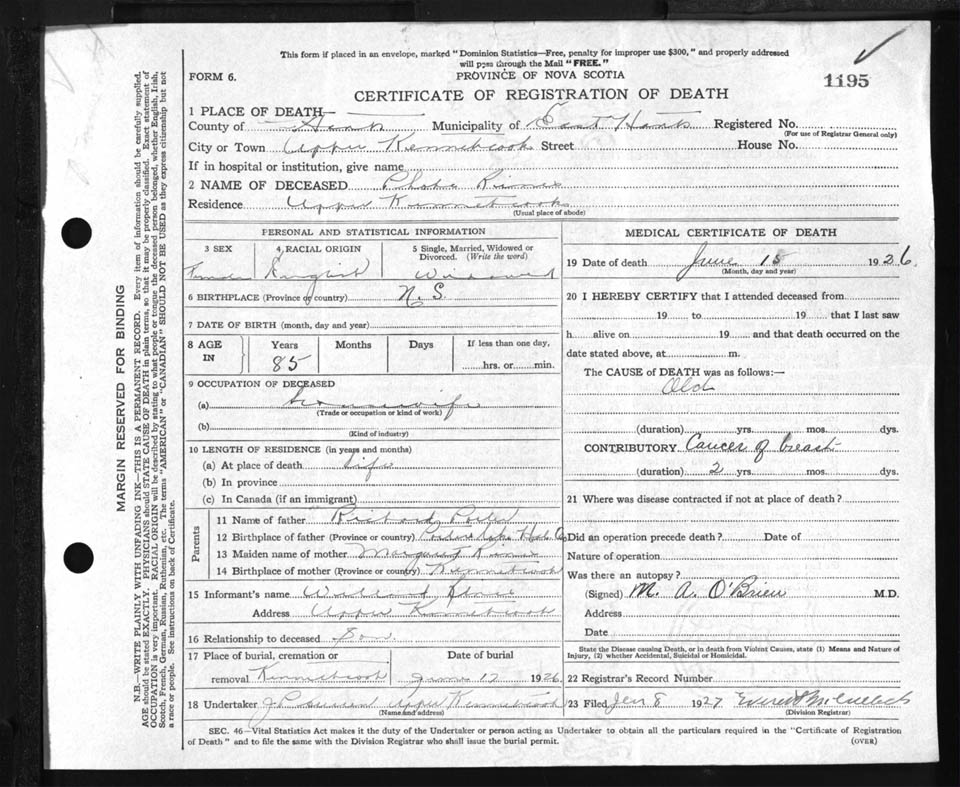 This form if placed in an envelope, marked "Dominion Statistics—Free, penalty for improper use $300," and properly addressed
will pass through the Mail "FREE."
FORM 6.
PROVINCE OF NOVA SCOTIA
1195
CERTIFICATE OF REGISTRATION OF DEATH
1 PLACE OF DEATH—
County of Hants Municipality of East Hants Registered No.
(For use of Registrar General only)
City or Town Upper Kennetcook Street House No.
If in hospital or institution, give name
2 NAME OF DECEASED
Residence Upper Kennetcook
(Usual place of abode)
PERSONAL AND STATISTICAL INFORMATION
3 SEX 4 RACIAL ORIGIN 5 Single, Married, Widowed or Divorced. (Write the word)
Female English Widowed
6 BIRTHPLACE (Province or country) N. S.
7 DATE OF BIRTH (month, day and year)
8 AGE IN Years Months Days If less than one day,
85 hrs. or min.
9 OCCUPATION OF DECEASED
(a) Housewife
(Trade or occupation or kind of work)
(b)
(Kind of industry)
10 LENGTH OF RESIDENCE (in years and months)
(a) At place of death Life
(b) In province
(c) In Canada (if an immigrant)
Parents
11 Name of father Richard
12 Birthplace of father (Province or country)
13 Maiden name of mother Margaret
14 Birthplace of mother (Province or country) Kennetcook
15 Informant's name
Address Upper Kennetcook
16 Relationship to deceased Son.
17 Place of burial, cremation or removal Kennetcook Date of burial June 17 1926
18 Undertaker Upper Kennetcook
(Name and address)
MEDICAL CERTIFICATE OF DEATH
19 Date of death June 15 1926.
(Month, day and year)
20 I HEREBY CERTIFY that I attended deceased from
19 to 19 that I last saw
h alive on 19 and that death occurred on the
date stated above, at m.
The CAUSE of DEATH was as follows:—
Old
(duration) yrs. mos. dys.
CONTRIBUTORY Cancer of breast
(duration) 2 yrs. mos. dys.
21 Where was disease contracted if not at place of death?
Did an operation precede death? Date of
Nature of operation
Was there an autopsy?
(Signed) M. A. O'Brien M.D.
Address
Date
State the Disease causing Death, or in death from Violent Causes, state (1) Means and Nature of
Injury, (2) whether Accidental, Suicidal or Homicidal.
22 Registrar's Record Number
23 Filed Jan 8 1927
(Division Registrar)
SEC. 46—Vital Statistics Act makes it the duty of the Undertaker or person acting as Undertaker to obtain all the particulars required in the "Certificate of Registration
of Death" and to file the same with the Division Registrar who shall issue the burial permit. (OVER)
MARGIN RESERVED FOR BINDING
N.B.—WRITE PLAINLY WITH UNFADING INK—THIS IS A PERMANENT RECORD. Every item of information should be carefully supplied.
AGE should be stated EXACTLY. PHYSICIANS should STATE CAUSE OF DEATH in plain terms, so that it may be properly classified. Exact statement of
OCCUPATION is very important. RACIAL ORIGIN will be described by stating to what people or tongue the deceased person belonged, whether English, Irish,
Scotch, French, German, Russian, Ruthenian, etc. The terms "AMERICAN" or "CANADIAN" SHOULD NOT BE USED as they express citizenship but not
a race or people. See instructions on back of Certificate.